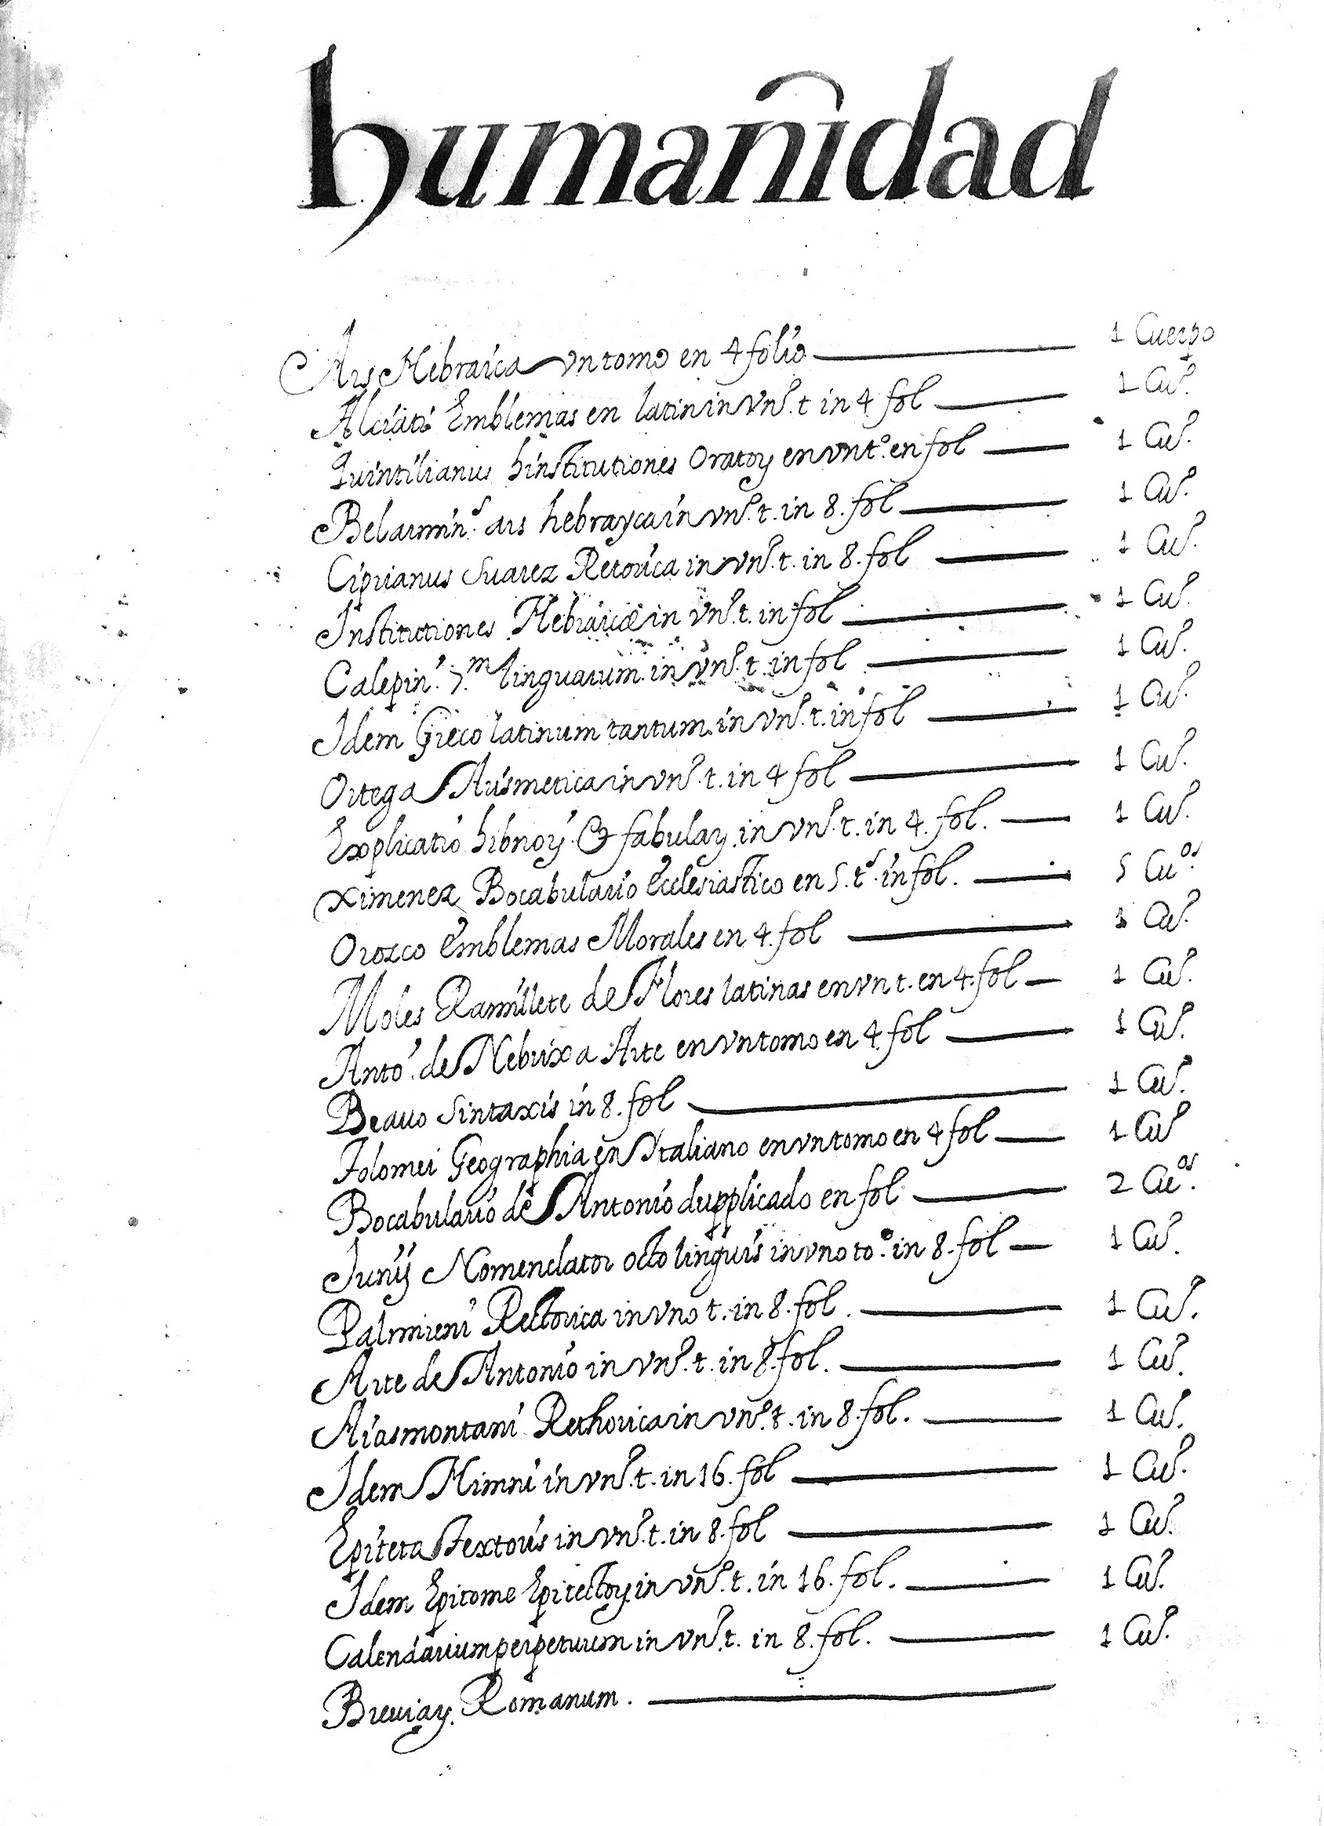 humanidad
Ars Hebraica un tomo en 4 folio 1 Cuerpo
Alciati Emblemas en latin in vnº. t in 4. fol 1 Cuº.
Quintilianus hinstitutiones Oratoꝝ en vn tº. en fol 1 Cuº.
Belarminº. ars hebrayca in vnº. t. in 8. fol 1 Cuº.
Ciprianus Suarez Retorica in vnº. t. in 8. fol 1 Cuº.
Institutiones Hebraicæ in vnº. t. in fol 1 Cuº.
Calepinº. 7.m linguarum in vnº. t. in fol 1 Cuº.
Idem Greco latinum tantum in vnº. t. in fol 1 Cuº.
Ortega Arismetica in vnº. t. in 4 fol 1 Cuº.
Explicatio hibnoꝝ & fabulaꝝ in vnº. t. in 4. fol. 1 Cuº.
Ximenez Bocabulario Ecclesiastico en 5. tº. in fol. 5 Cuos.
Orozco Emblemas Morales en 4. fol 1 Cuº.
Moles Ramillete de Flores latinas en vn t. en 4. fol 1 Cuº.
Antoº. de Nebrixa Arte en vn tomo en 4. fol 1 Cuº.
Brauo Sintaxis in 8. fol 1 Cuº.
Tolomei Geographia en Italiano en vn tomo en 4 fol 1 Cuº
Bocabulario de Antonio dupplicado en fol 2 Cuos.
Junij Nomenclator octo linguis in vno toº. in 8. fol 1 Cuº.
Palmieri Rectorica in vno t. in 8. fol. 1 Cuº.
Arte de Antonio in vnº. t. in 8. fol. 1 Cuº.
Ariasmontani Rethorica in vnº. t. in 8. fol. 1 Cuº.
Idem Himni in vnº. t. in 16. fol 1 Cuº.
Epiteta Textoris in vnº. t. in 8. fol 1 Cuº.
Idem Epitome Epitectoꝝ in vnº. t. in 16. fol. 1 Cuº.
Calendarium perpetuum in vnº. t. in 8. fol. 1 Cuº.
Breuiaꝝ. Romanum.